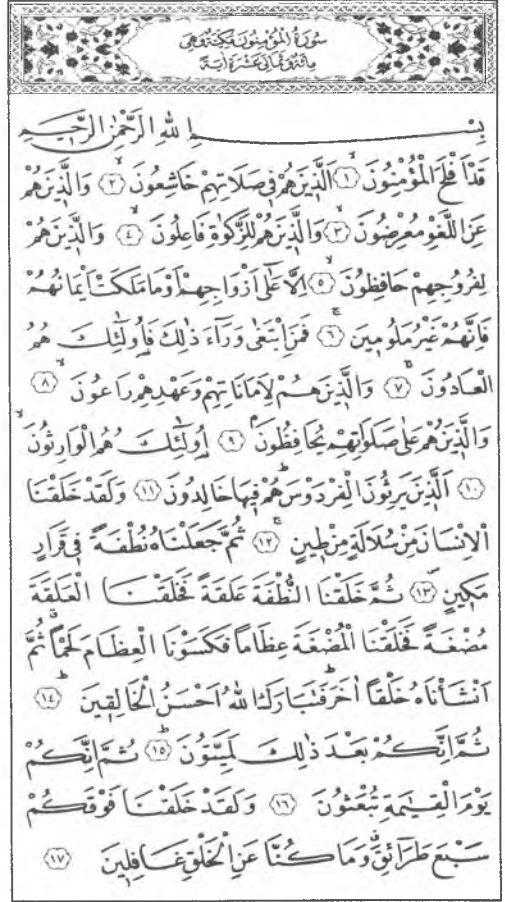 سُورَةُ الْمُؤْمِنُونَ مَكِّيَّةٌ وَهِيَ
مِائَةٌ وَثَمَانِيَ عَشْرَةَ اٰيَةً
بِسْمِ اللهِ الرَّحْمٰنِ الرَّحٖيمِ
قَدْ اَفْلَحَ الْمُؤْمِنُونَۙ ﴿١﴾ اَلَّذٖينَ هُمْ فٖي صَلَاتِهِمْ خَاشِعُونَۙ ﴿٢﴾ وَالَّذٖينَ هُمْ
عَنِ اللَّغْوِ مُعْرِضُونَۙ ﴿٣﴾ وَالَّذٖينَ هُمْ لِلزَّكٰوةِ فَاعِلُونَۙ ﴿٤﴾ وَالَّذٖينَ هُمْ
لِفُرُوجِهِمْ حَافِظُونَۙ ﴿٥﴾ اِلَّا عَلٰٓى اَزْوَاجِهِمْ اَوْ مَا مَلَكَتْ اَيْمَانُهُمْ
فَاِنَّهُمْ غَيْرُ مَلُومٖينَۚ ﴿٦﴾ فَمَنِ ابْتَغٰى وَرَٓاءَ ذٰلِكَ فَاُولٰٓئِكَ هُمُ
الْعَادُونَۚ ﴿٧﴾ وَالَّذٖينَ هُمْ لِاَمَانَاتِهِمْ وَعَهْدِهِمْ رَاعُونَۙ ﴿٨﴾
وَالَّذٖينَ هُمْ عَلٰى صَلَوَاتِهِمْ يُحَافِظُونَۘ ﴿٩﴾ اُولٰٓئِكَ هُمُ الْوَارِثُونَۙ
﴿١٠﴾ اَلَّذٖينَ يَرِثُونَ الْفِرْدَوْسَؕ هُمْ فٖيهَا خَالِدُونَ ﴿١١﴾ وَلَقَدْ خَلَقْنَا
الْاِنْسَانَ مِنْ سُلَالَةٍ مِنْ طٖينٍۚ ﴿١٢﴾ ثُمَّ جَعَلْنَاهُ نُطْفَةً فٖي قَرَارٍ
مَكٖينٍࣕ ﴿١٣﴾ ثُمَّ خَلَقْنَا النُّطْفَةَ عَلَقَةً فَخَلَقْنَا الْعَلَقَةَ
مُضْغَةً فَخَلَقْنَا الْمُضْغَةَ عِظَاماً فَكَسَوْنَا الْعِظَامَ لَحْماًࣗ ثُمَّ
اَنْشَأْنَاهُ خَلْقاً اٰخَرَؕ فَتَبَارَكَ اللهُ اَحْسَنُ الْخَالِقٖينَؕ ﴿١٤﴾
ثُمَّ اِنَّكُمْ بَعْدَ ذٰلِكَ لَمَيِّتُونَؕ ﴿١٥﴾ ثُمَّ اِنَّكُمْ
يَوْمَ الْقِيٰمَةِ تُبْعَثُونَ ﴿١٦﴾ وَلَقَدْ خَلَقْنَا فَوْقَكُمْ
سَبْعَ طَرَٓائِقَࣗ وَمَا كُنَّا عَنِ الْخَلْقِ غَافِلٖينَ ﴿١٧﴾